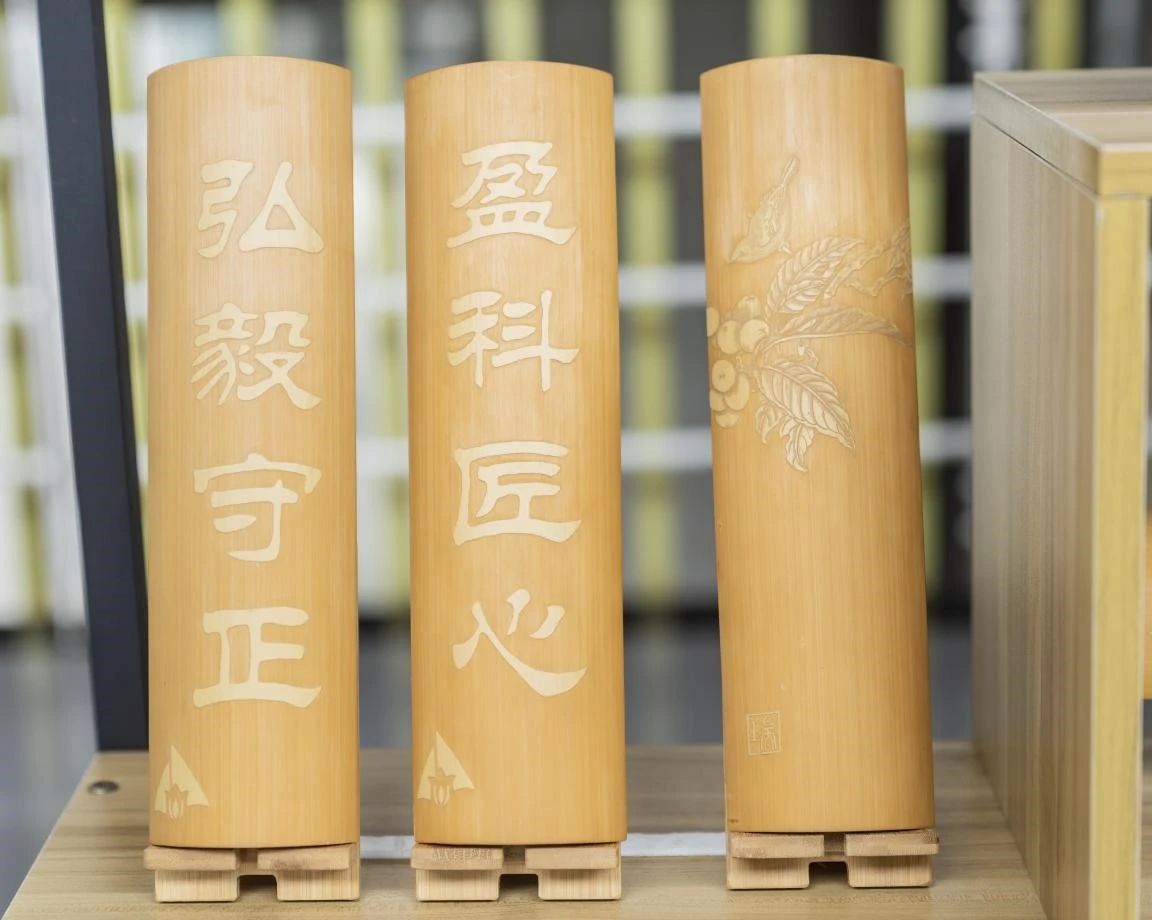 弘毅守正
盈科匠心